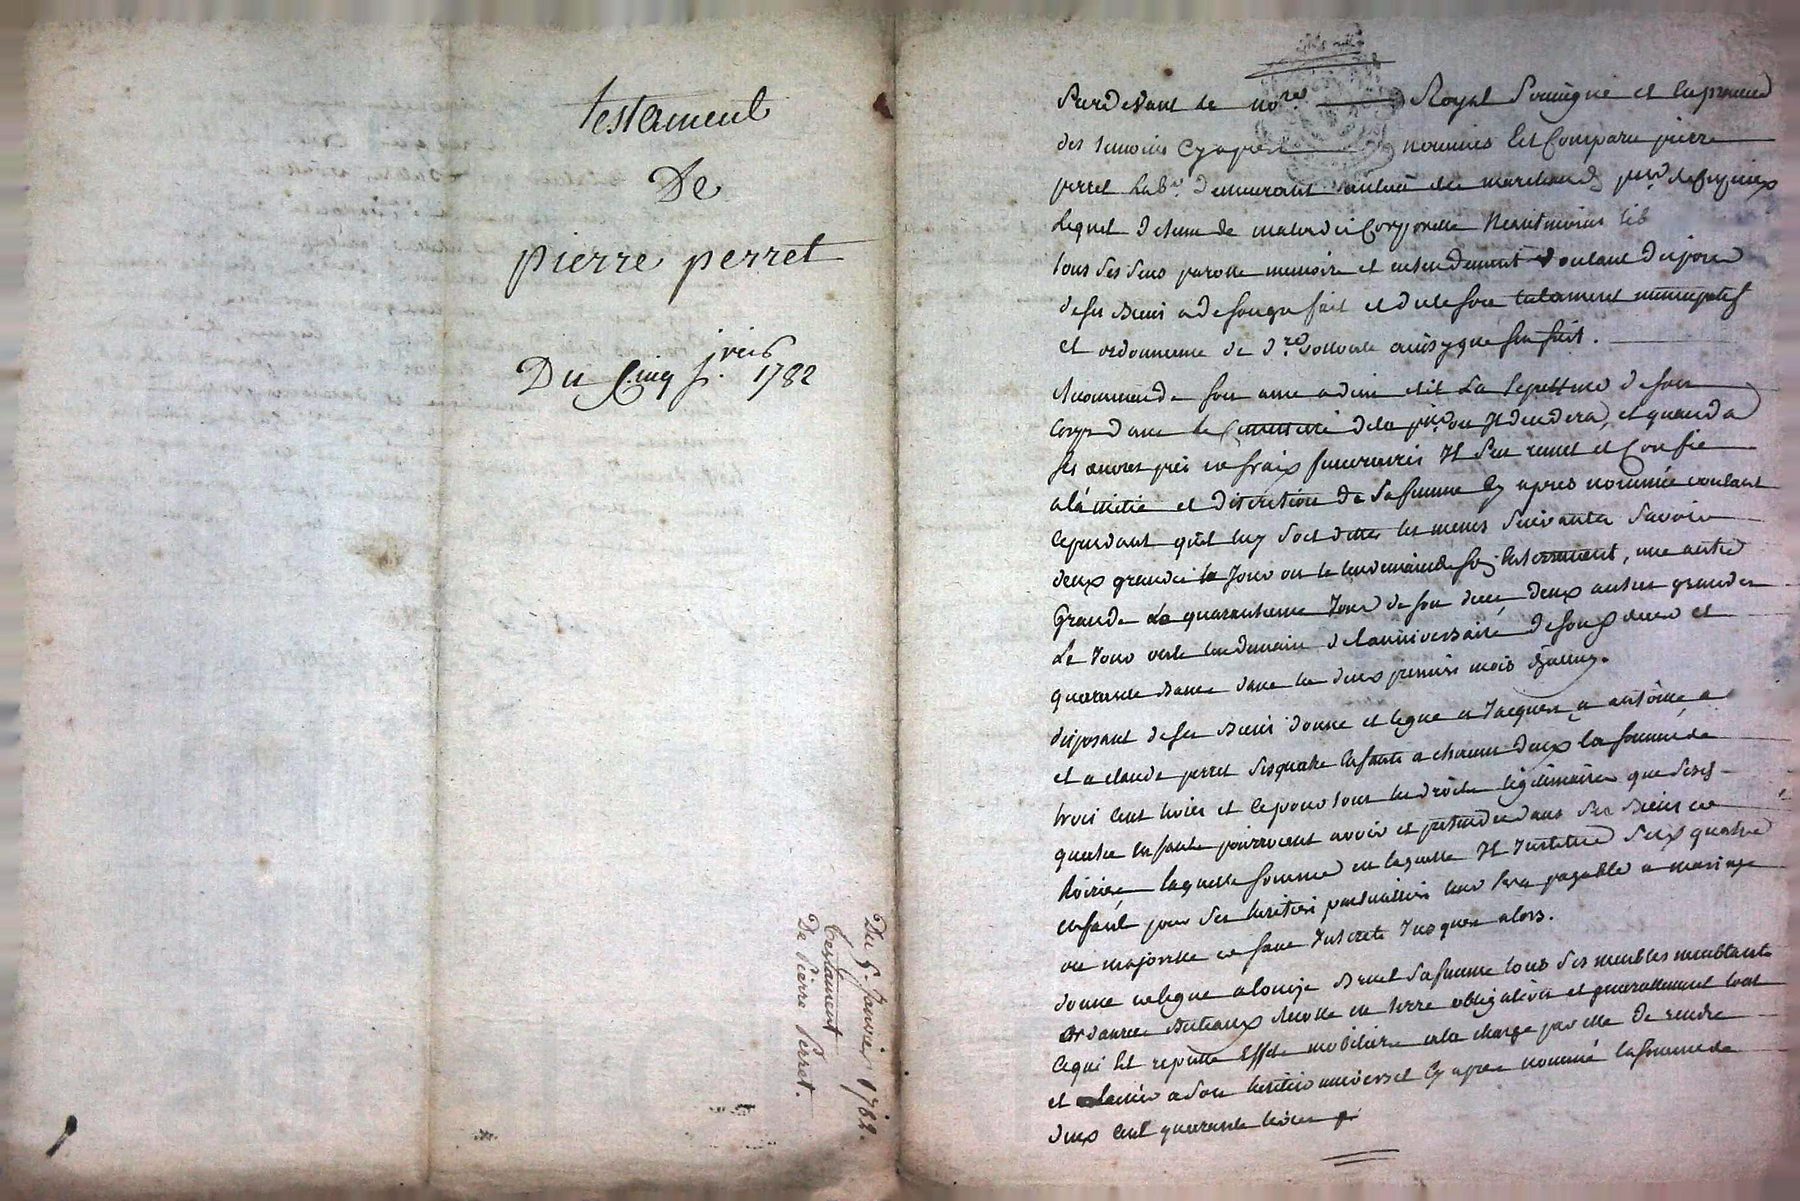 testament
De
pierre perret
Du Cinq j.vier 1782
Du 5. Janvier 1782.
testament
De Pierre Perret.
Pardevant le no.re Royal soussigné et en presence
des temoins cy apres nommés Est Comparu pierre
perret lab.r demeurant
Lequel detenu de maladie Corporelle Neantmoins
tous ses sens parolle memoire et entendement voulant disposer
de ses Biens a de son gre fait et dicte son testament nuncupatif
et ordonnance de d.re volonté ainsy que s'en suit.
Recommande son ame a dieu elit La sepulture de son
Corps dans le Cimettiere de la p.sse ou Il decedera, et quand a
ses œuvres pies et frais funeraires Il s'en remet et Confie
a l'amitié et discretion de sa femme Cy apres nommée voulant
Cependant qu'il luy soit dittes les messes suivantes savoir
deux grandes le Jour ou le lendemain de son Enterrement, une autre
Grande Le quarantieme Jour de son deces deux autres grandes
Le Jour et le lendemain de l'anniversaire de son deces et
quarante Basses dans les deux premiers mois d'jcelluy.
disposant de ses Biens donne et legue a Jacques, a antoine a
et a claude perret ses quatre Enfants a chacun d'eux la somme de
trois cent livres et ce pour tous les droits legitimaires que sesd.
quatre Enfants pourroient avoir et pretendre dans ses Biens et
hoirie, laquelle somme en laquelle Il Institue sesd. quatre
enfant pour ses heritiers particuliers leur sera payable a mariage
ou majorité et sans Interets Jusques alors.
donne et legue a Bruel sa femme tous ses meubles meublants
danrées Bestiaux Recolte en terre obligation et generallement tout
ce qui Est reputté Effets mobiliere a la charge par elle de rendre
et a son heritier universel Cy apres nommé la somme de
deux cent quarante livres